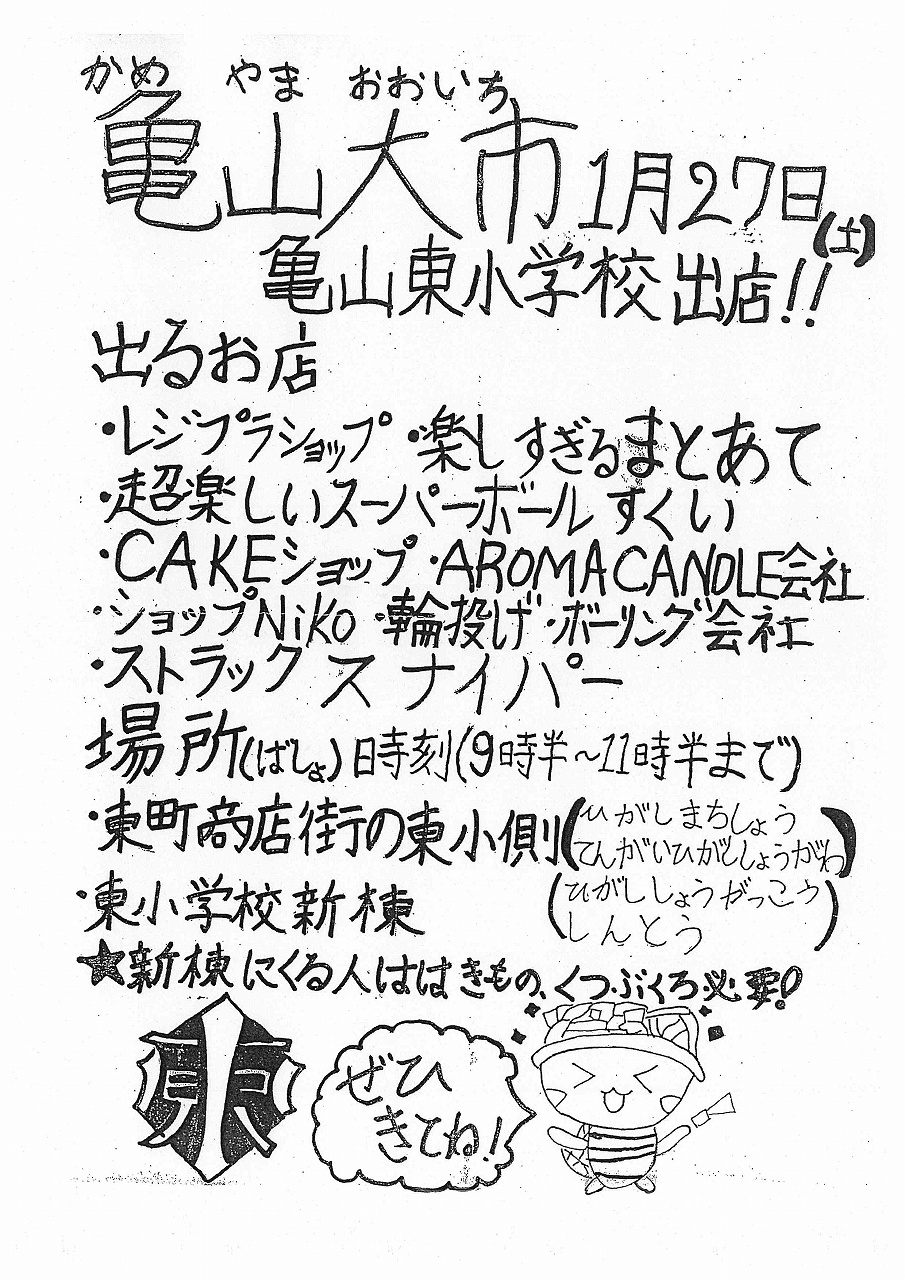 かめ やま おおいち
亀山大市 1月27日(土)
亀山東小学校出店!!
出るお店
・レジプラショップ ・楽しすぎるまとあて
・超楽しいスーパーボールすくい
・CAKEショップ ・AROMACANDLE会社
・ショップNiKo ・輪投げ ・ボーリング会社
・ストラックスナイパー
場所(ばしょ) 日時刻(9時半~11時半まで)
・東町商店街の東小側(ひがしまちしょう
てんがいひがししょうがわ)
・東小学校新棟(ひがししょうがっこう
しんとう)
★新棟にくる人ははきもの、くつぶくろ必要!
東
ぜひ
きてね!